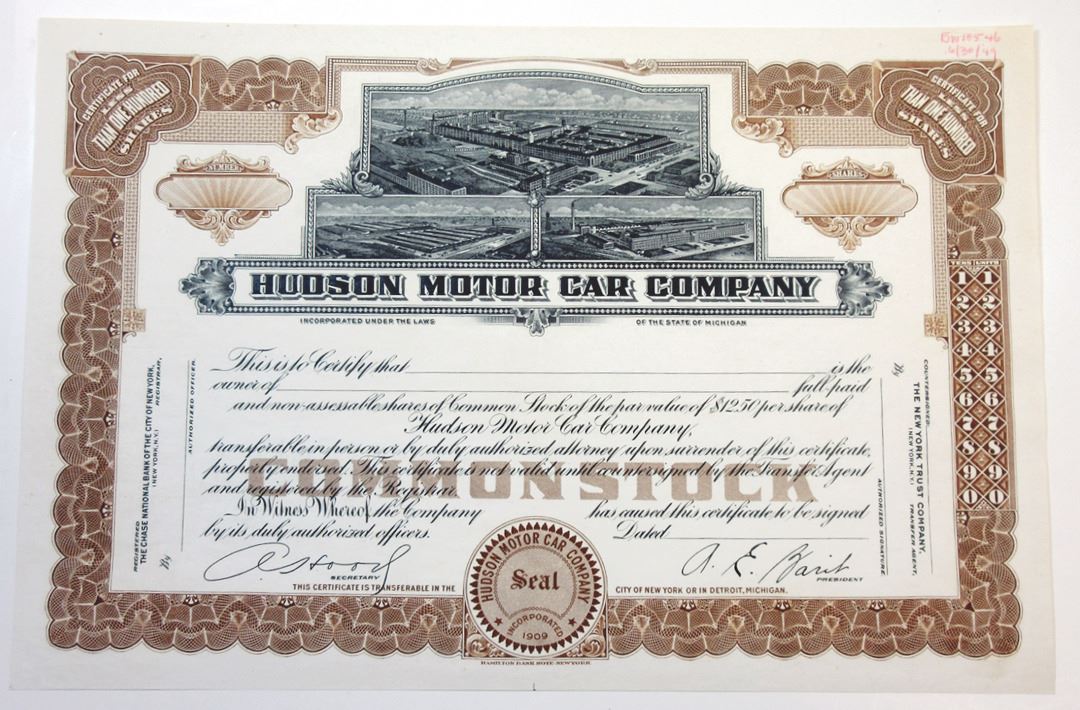 BW155-46
6/30/49
CERTIFICATE FOR
LESS
THAN ONE HUNDRED
SHARES
CERTIFICATE FOR
LESS
THAN ONE HUNDRED
SHARES
NUMBER
SHARES
HUDSON MOTOR CAR COMPANY
INCORPORATED UNDER THE LAWS OF THE STATE OF MICHIGAN
This is to Certify that is the
owner of full-paid
and non-assessable shares of Common Stock of the par value of $12.50 per share of
Hudson Motor Car Company,
transferable in person or by duly authorized attorney upon surrender of this certificate,
properly endorsed. This certificate is not valid until countersigned by the Transfer Agent
and registered by the Registrar.
COMMON STOCK
In Witness Whereof, the Company has caused this certificate to be signed
by its duly authorized officers. Dated
A. E. Barit
SECRETARY
PRESIDENT
THIS CERTIFICATE IS TRANSFERABLE IN THE CITY OF NEW YORK OR IN DETROIT, MICHIGAN.
HUDSON MOTOR CAR COMPANY
Seal
INCORPORATED
1909
HAMILTON BANK NOTE-NEW YORK
REGISTERED
THE CHASE NATIONAL BANK OF THE CITY OF NEW YORK,
(NEW YORK, N.Y.) REGISTRAR,
By
AUTHORIZED OFFICER.
COUNTERSIGNED
THE NEW YORK TRUST COMPANY,
(NEW YORK, N.Y.) TRANSFER AGENT,
By
AUTHORIZED SIGNATURE.
TENS UNITS
1 1
2 2
3 3
4 4
5 5
6 6
7 7
8 8
9 9
0 0